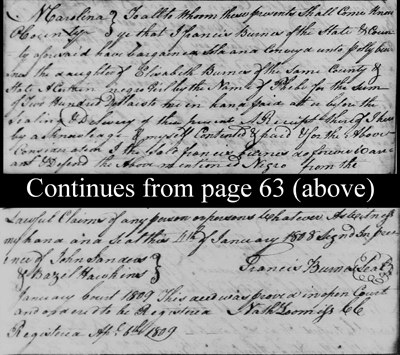 N Carolina } To all to whom these presents Shall Come know
ye that I Francis Burns of the State & Coun
ty aforesaid have bargained Sold and Conveyd unto
and the daughter of Elizabeth Burns of the same County &
State A Certain negro by the Name of for the Sum
of Two Hundred me in hand paid at or before the
Sealing & Delivery of these presents A Receipt thereof I here
by acknowledge & myself Contented & paid for the Above
Consideration I the Said Francis Burns do forever
and Defend the Above mention Negro from the
Continues from page 63 (above)
Lawful Claims of any person or persons Whatever As
my hand and Seal this of January 1808 Signd In pre
ence of John Sanders }
& Bazel Hawkins } Francis Burns Seal
January Court 1809 This deed was proved in open Court
and ordered to be Registered
Registered 1809